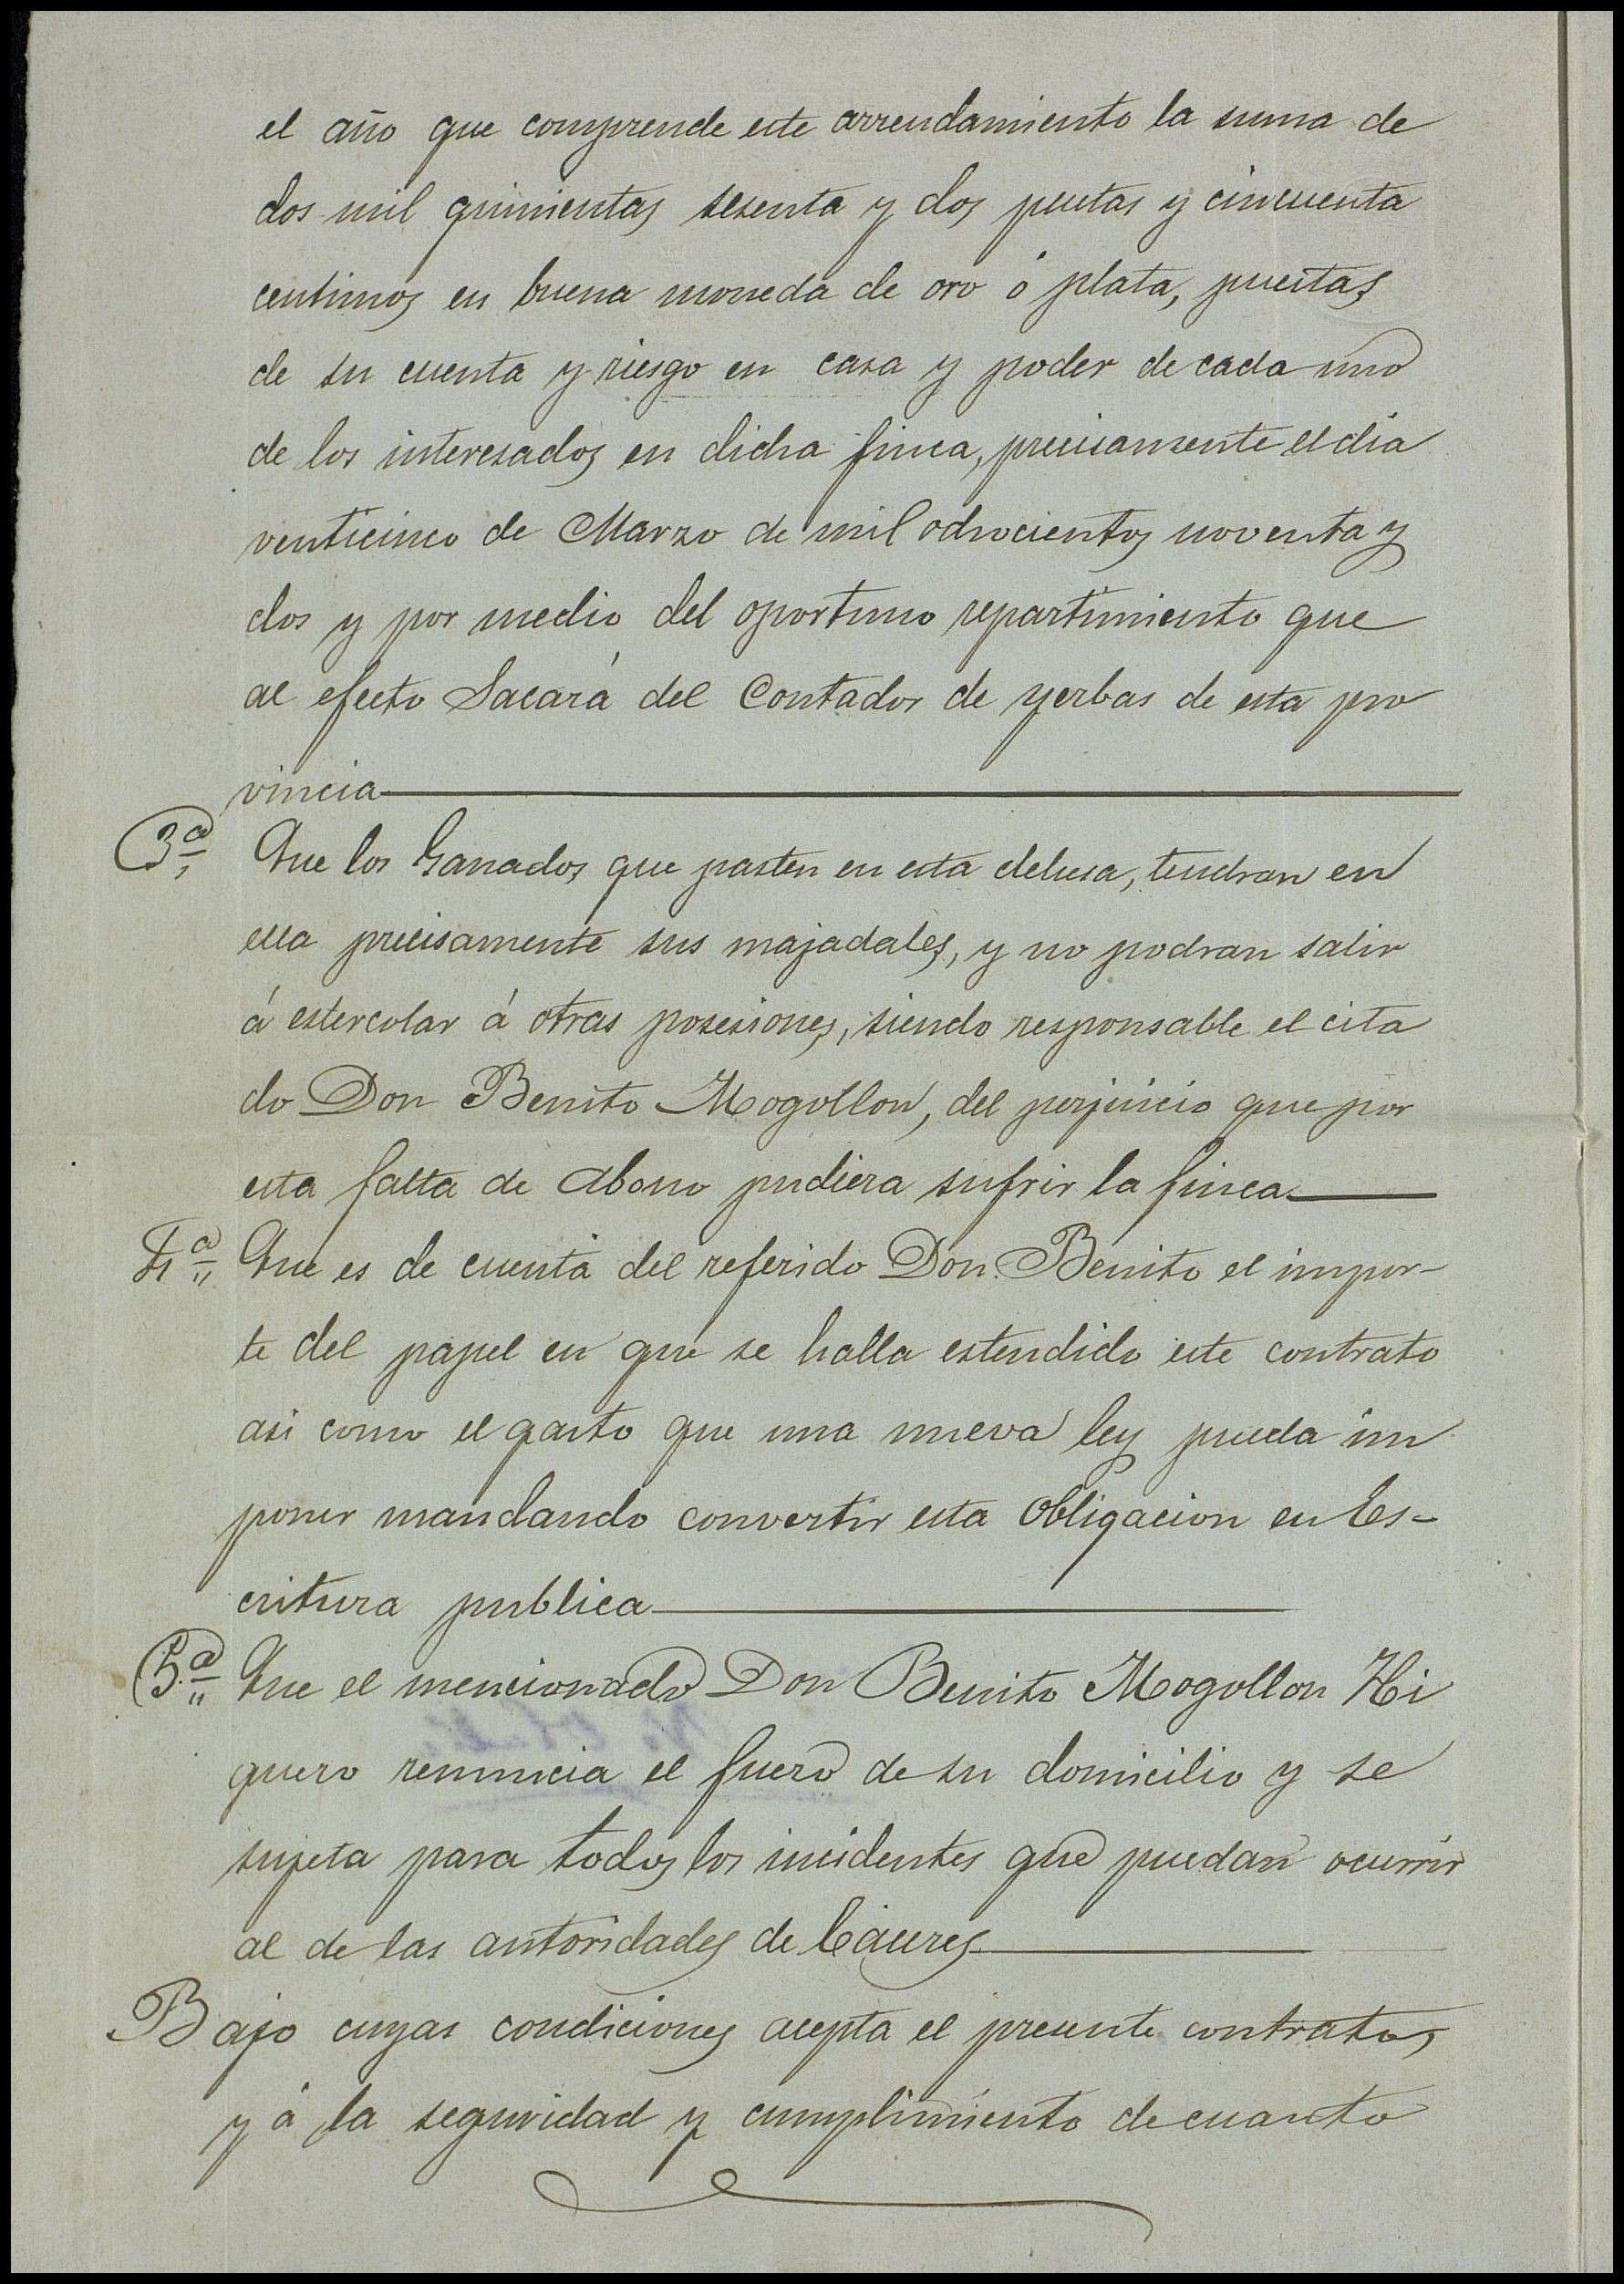 el año que comprende este arrendamiento la suma de
dos mil quinientas sesenta y dos pesetas y cincuenta
centimos en buena moneda de oro ó plata, puestas
de su cuenta y riesgo en casa y poder de cada uno
de los interesados en dicha finca, precisamente el dia
venticinco de Marzo de mil odrocientos noventa y
dos y por medio del oportuno repartimiento que
al efecto Sacará del Contador de yerbas de esta pro
vincia
3ª Que los Ganados que pasten en esta dehesa, tendran en
ella precisamente sus majadales, y no podran salir
á estercolar á otras posesiones, siendo responsable el cita
do Don Benito Mogollon, del perjuicio que por
esta falta de Abono pudiera sufrir la finca
4ª Que es de cuenta del referido Don Benito el impor-
te del papel en que se halla estendido este contrato
asi como el gasto que una nueva ley pueda im
poner mandando convertir esta Obligacion en Es-
critura publica
5ª Que el mencionado Don Benito Mogollon Hi
guero renuncia el fuero de su domicilio y se
sujeta para todos los incidentes que puedan ocurrir
al de las autoridades de Cáceres
Bajo cuyas condiciones acepta el presente contrato,
y á la seguridad y cumplimiento de cuanto